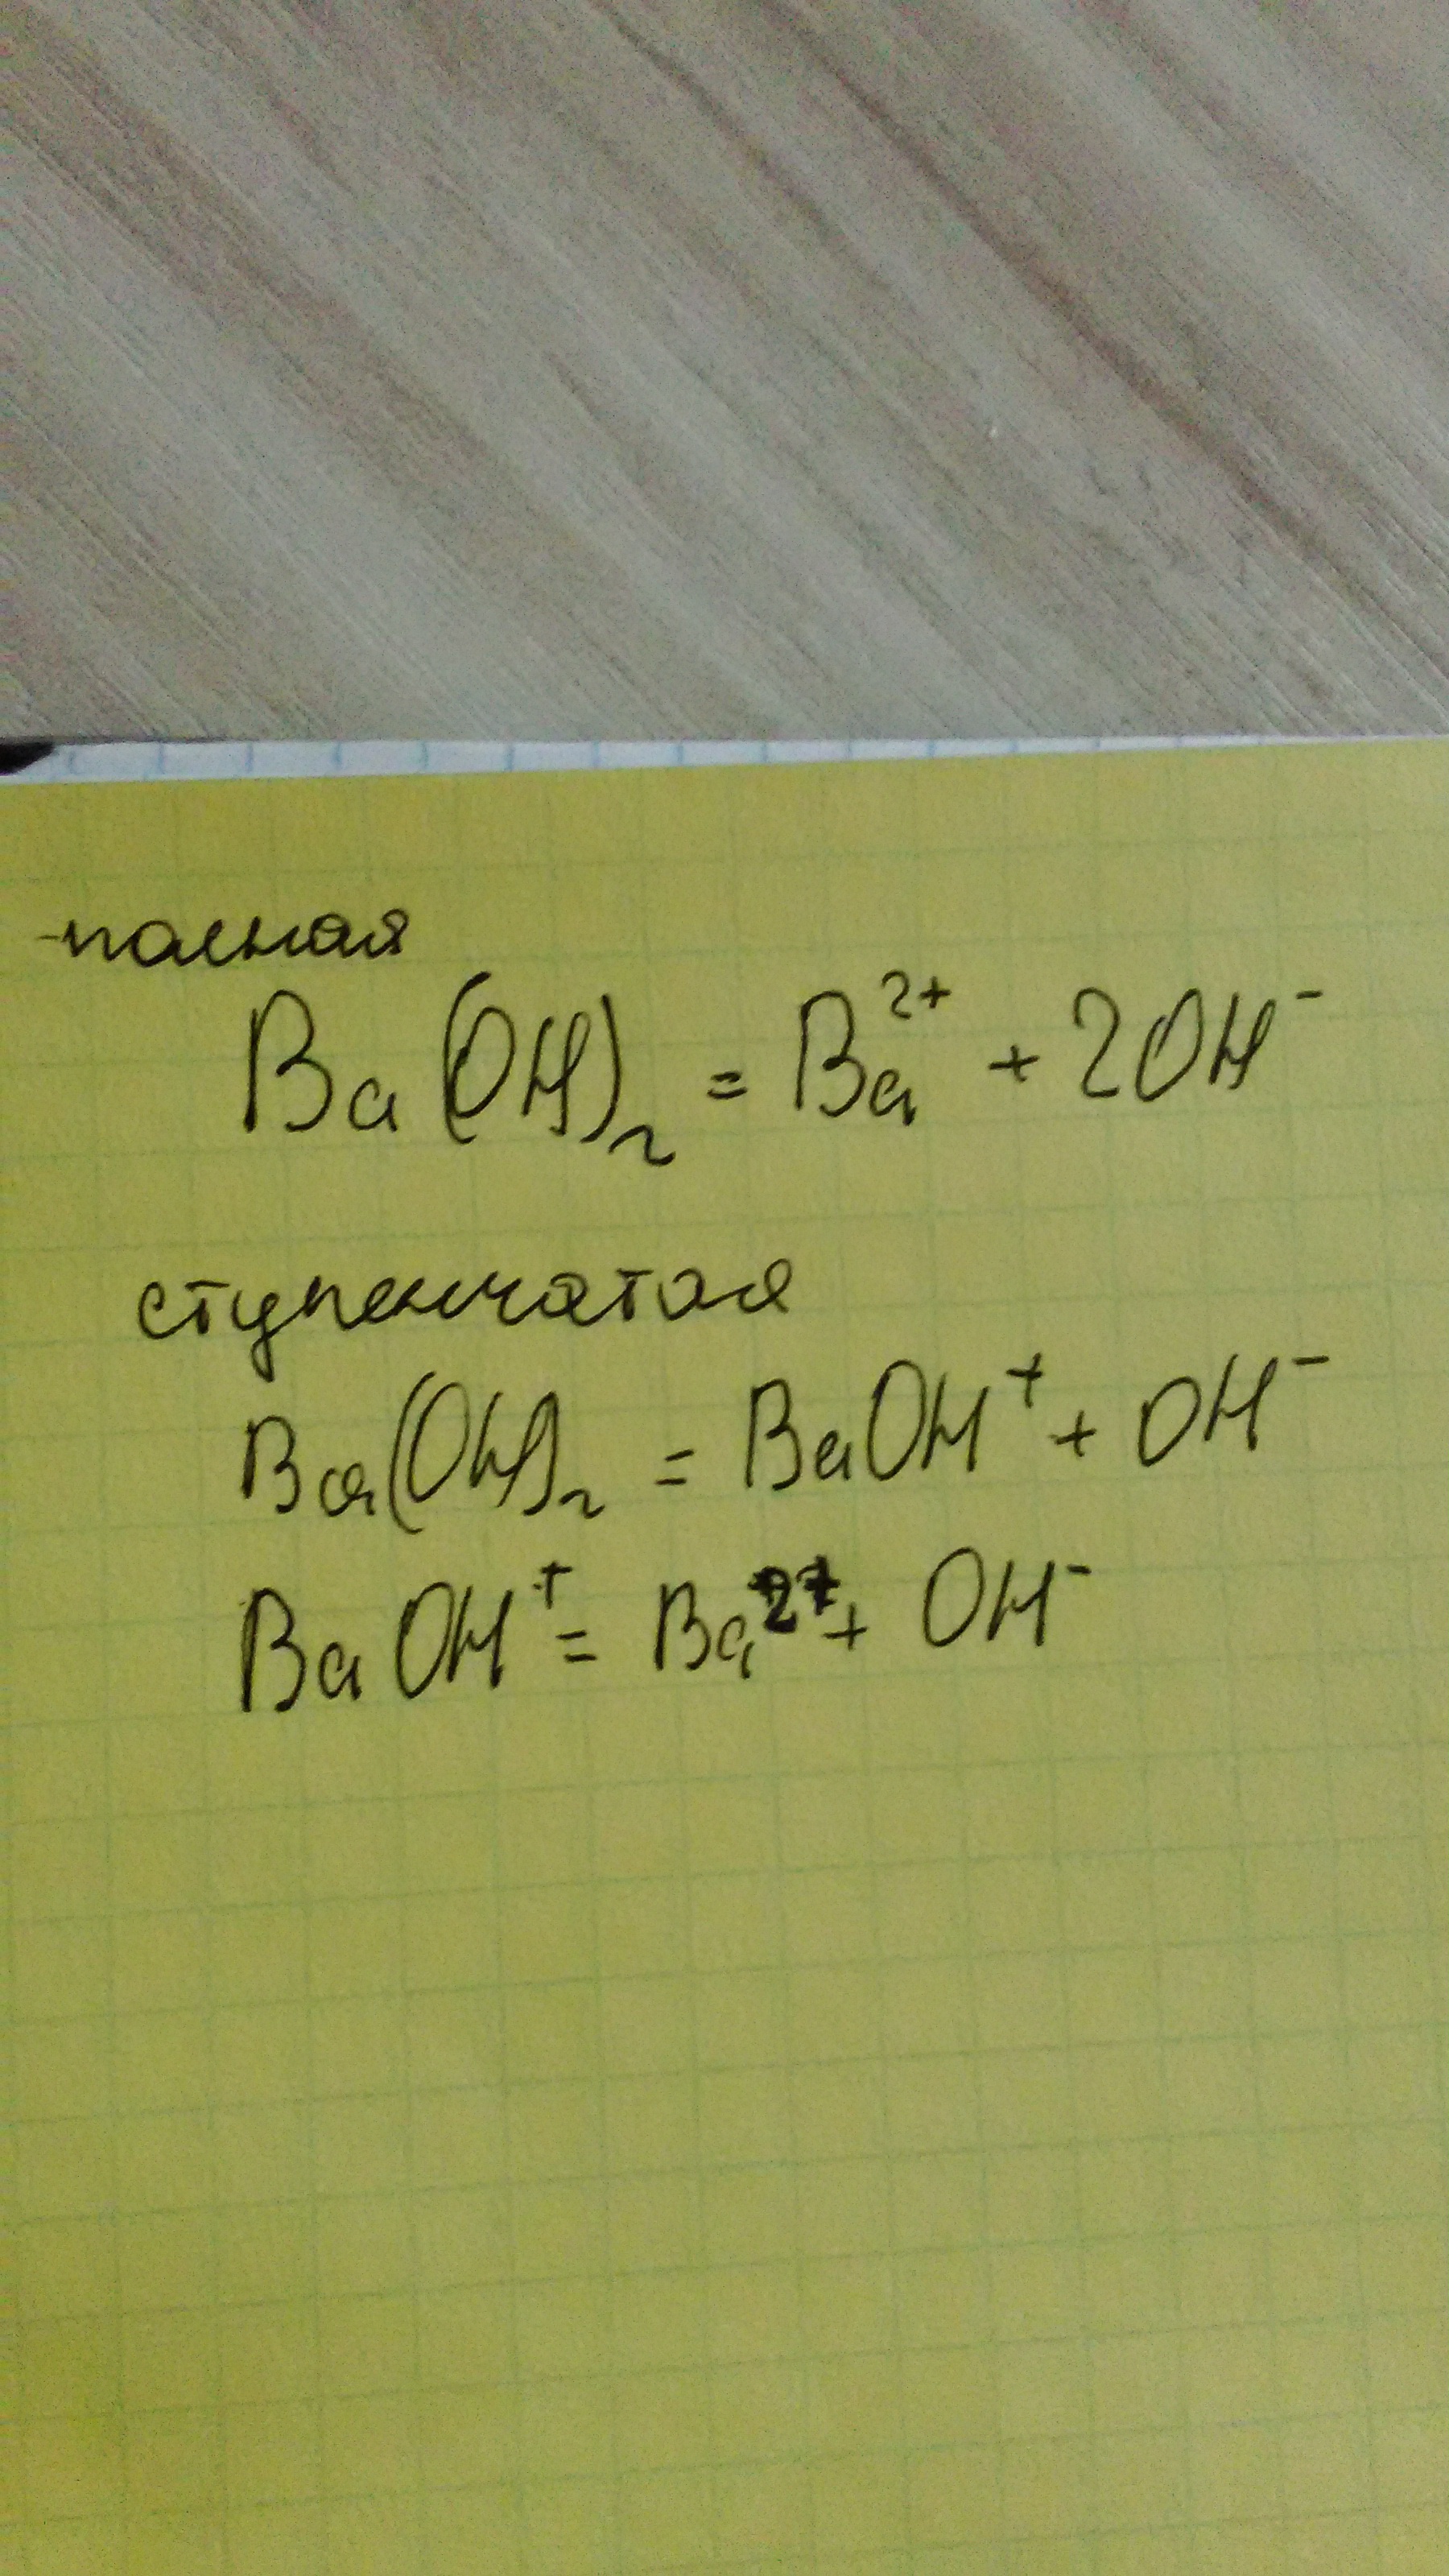 полная
Ba(OH)₂ = Ba²⁺ + 2OH⁻
ступенчатая
Ba(OH)₂ = BaOH⁺ + OH⁻
BaOH⁺ = Ba²⁺ + OH⁻